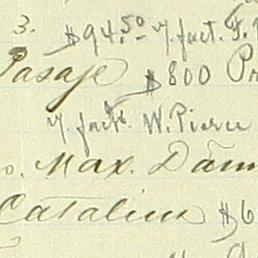 3. $94.50 y fact. F.
Pasaje $800 Pr
y fact. W. Pierce
o. Max. Dam
Catalina $6